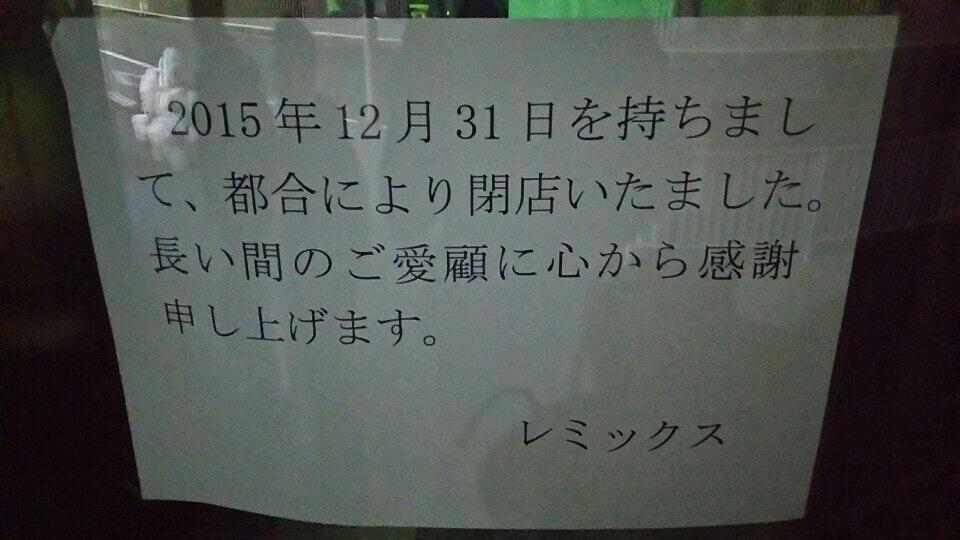 2015年12月31日を持ちまし
て、都合により閉店いたました。
長い間のご愛顧に心から感謝
申し上げます。
レミックス